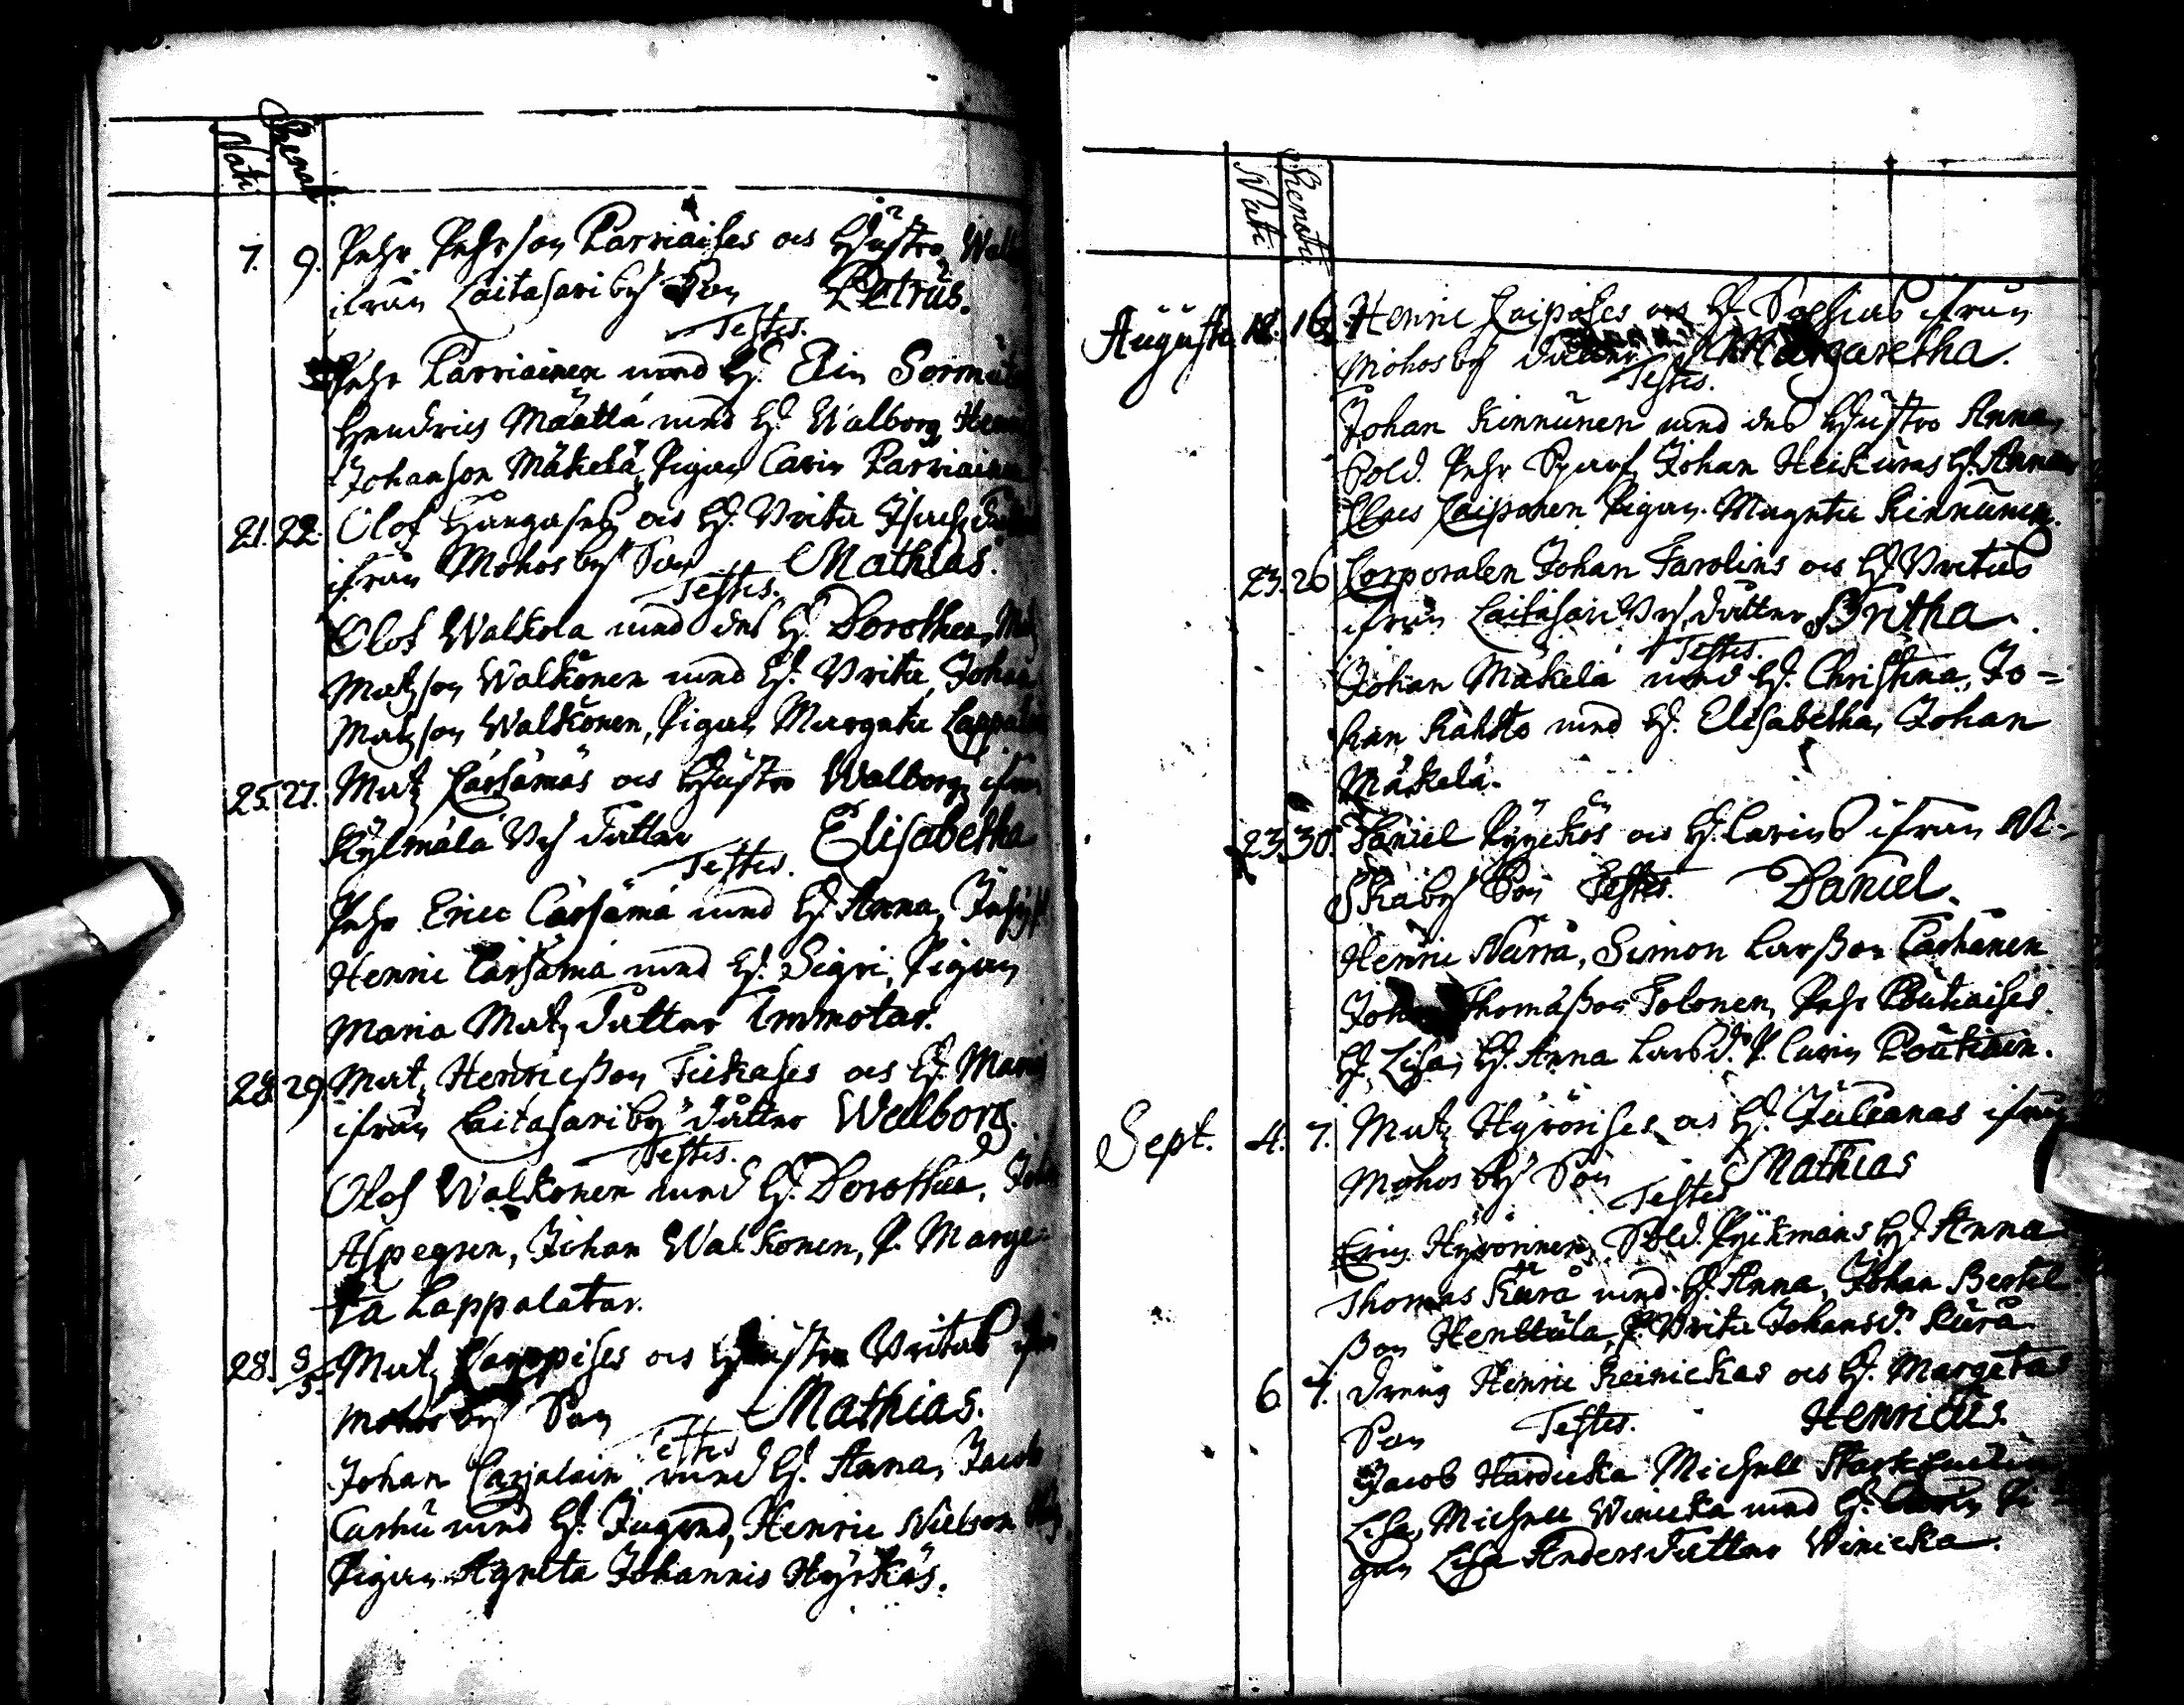 Nati Renati
7. 9. Pehr Pehrson Parriaises os Hustro
ifrån Laitasari by Son Petrus.
Testes.
Pehr Parriainen med H. Elin
Hendrich Määttä med H. Walborg
Johanson Mäkelä, Pigan Carin Parriainen
21. 22. Olof Hangases os H. Brita
ifrån Mohos by Son Mathias.
Testes.
Olof Walkola med des H. Dorothea,
Matzson Walkonen med H. Brita, Johan
Matzson Walkonen, Pigan Margeta
25. 27. Matz Carsämäs os Hustro Walborg ifrån
Kylmälä By Dotter Elisabetha
Testes.
Pehr Eric Carsämä med H. Anna,
Henric Carsämä med H. Sigri, Pigan
Maria Matz Dotter Immotar.
28. 29. Matz Henricßon Tickases os H.
ifrån Laitasari by Dotter Wellborg.
Testes.
Olof Walkonen med H. Dorothea,
Aspegren, Johan Walkonen, P. Marge=
ta Lappalatar.
28. 3/5. Matz os Hustro Britas
Mohos by Son Mathias.
Testes
Johan Carjalain med H. Anna, Jacob
Carhu med H. Ingend, Henric Nielson
Pigan Agneta Johannis Hyrkäs.
Nati Renati
Augusti 12. 16. Henric Laipases os H. Sophias ifrån
Mohos by Dotter Margaretha.
Testes.
Johan Kinnunen med des Hustro Anna,
Sold. Pehr Sparf, Johan Heikuras H. Anna
Claes Laiponen Pigan Magreta Kinnunen.
23. 26 Corporalen Johan Farolins os H. Britas
ifrån Laitasari By, Dotter Britha.
Testes.
Johan Mäkelä med H. Christina, Jo=
han Kahko med H. Elisabetha, Johan
Mäkelä.
23. 30. Daniel Pyykös os H. Carins ifrån
by Son Testes. Daniel.
Henric Nurra, Simon Larßon Carhanen
Johan Thomaßon Tolonen, Pehr Poutiaises
H. Lisa, H. Anna Larsd. P. Carin Poutiain.
Sept. 4. 7. Matz Hyrörises os H. Julianas ifrån
Mohos by Son Mathias
Testes
Eric Hyvörinen, Sold. Pyckmans H. Anna
Thomas Kura med H. Anna, Johan Bertel
ßon Henttula, P. Brita Johansd. Kura.
6. 7. Dreng Henric Keinickas os H. Margetas
Son Testes. Henricus.
Jacob Harducka Michell
Lisa, Michell Winicka med H. Carin Pi=
gan Lisa Anders Dotter Winicka.